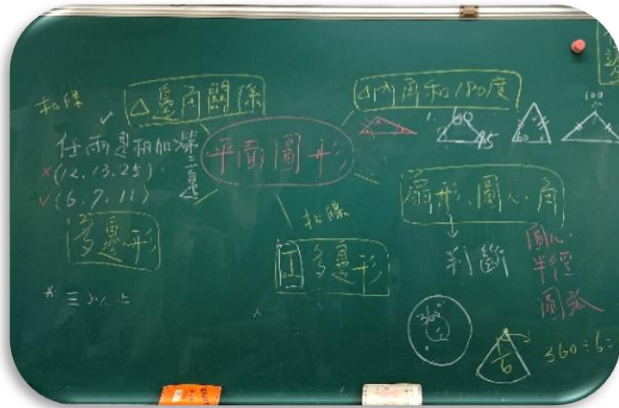 扣條
△邊角關係
任兩邊相加 第三邊
×(12.13.25)
✓(6.7.11)
多邊形
三 以上
平面圖形
扣條
正多邊形
△內角和180度
60
45
100
扇形、圓心角
判斷
圓心
半徑
圓弧
360°
6
360÷6=